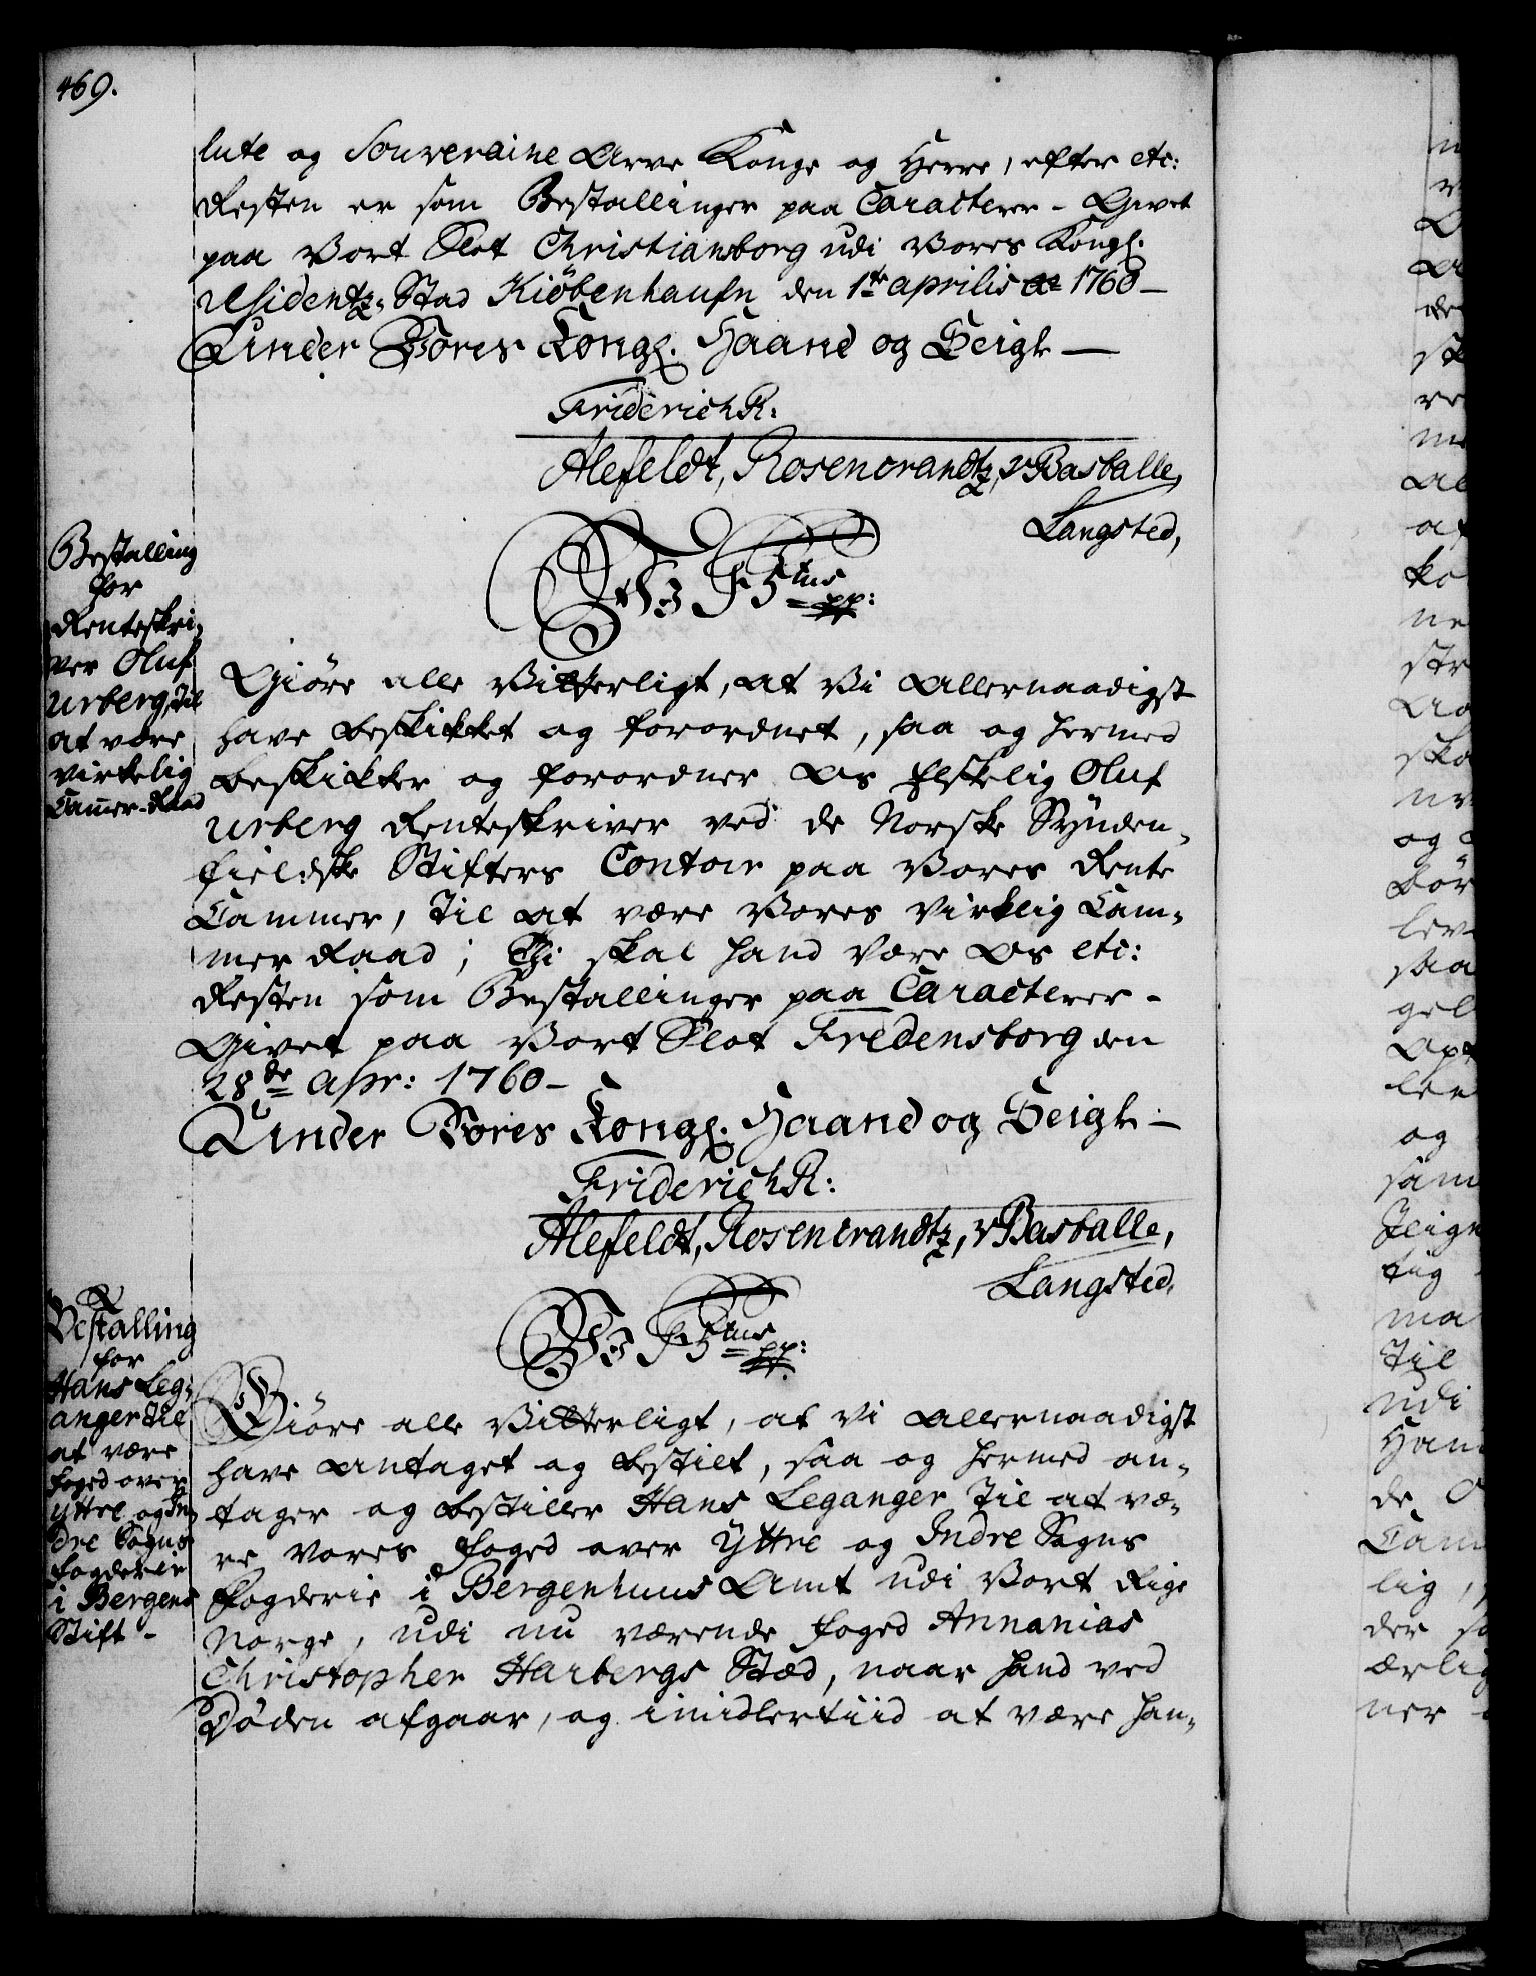 469.
lute og Souveraine Arve Konge og Herre, efter etc:
Resten er som Bestallinger paa Caracterer - Givet
paa Vort Slot Christiansborg udi Vores Kongl.
Residentz-Stad Kiöbenhaufn den 1te aprilis 1760 -
Under Vores Kongl. Haand og Seigl -
Friderich R:
Alefeldt, Rosencrandtz, v Basballe,
Langsted,
Bestalling
for
Renteskri-
ver Oluf
Urberg, Til
at være
virkelig
Cam̄er-Raad
Wi F 5tus pp:
Giöre alle Vitterligt, at Vi Allernaadigst
have beskikket og forordnet, saa og hermed
beskikker og forordner Os Elskelig Oluf
Urberg Renteskriver ved de Norske Synden-
fieldske Stifters Contoir paa Vores Rente
Cammer, Til at være Vores Virklig Cam-
mer Raad; Thi skal hand være Os etc:
Resten som Bestallinger paa Caracterer -
Givet paa Vort Slot Fredensborg den
28de apr: 1760 -
Under Vores Kongl. Haand og Seigl -
Friderich R:
Alefeldt, Rosencrandtz, v Basballe,
Langsted,
Bestalling
for
Hans Leg-
anger til
at være
foged over
yttre og In-
dre Sogns
fogderie
i Bergens
Stift -
Wi F 5tus pp:
Giöre alle Vitterligt, at Vi Allernaadigst
have Antaget og bestilt, saa og hermed an-
tager og bestiller Hans Leganger Til at væ-
re Vores foged over Yttre og Indre Sogns
fogderie i Bergenhuus Amt udi Vort Rige
Norge, udi nu værende foged Annanias
Christopher Harbergs Stæd, naar hand ved
Döden afgaar, og imidlertiid at være han-